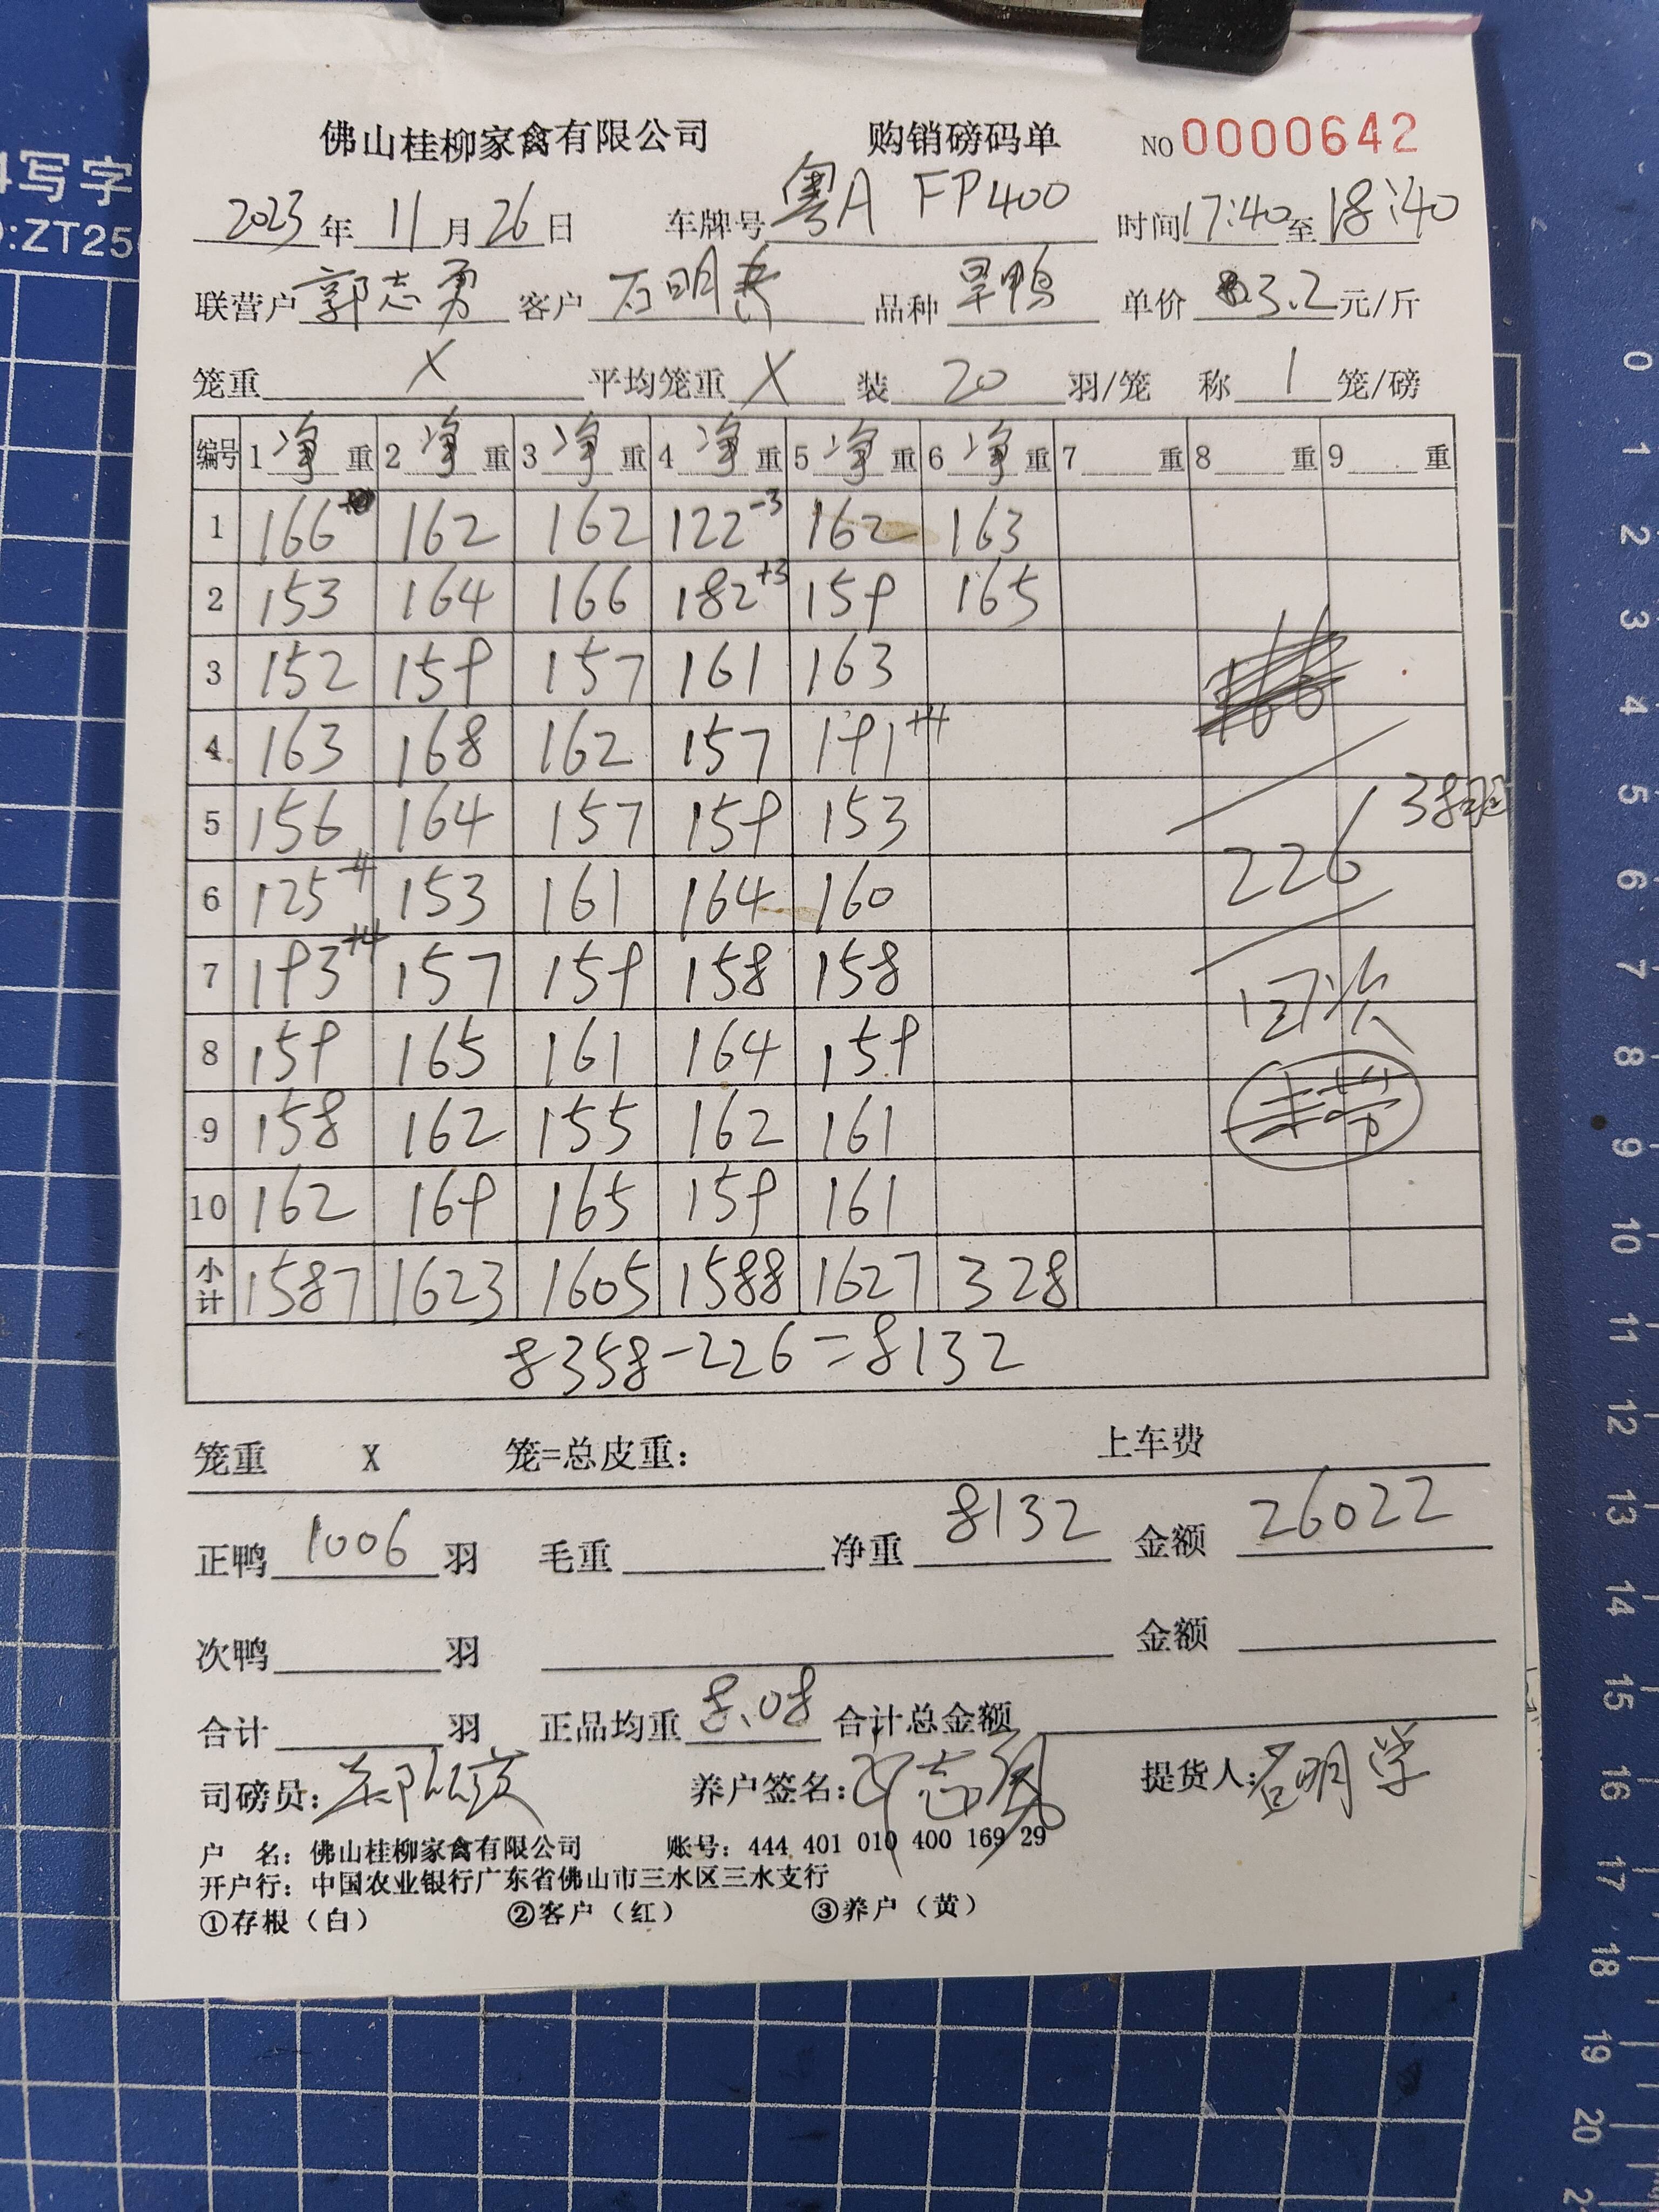 佛山桂柳家禽有限公司 购销磅码单 NO 0000642
2023 年 11 月 26 日 车牌号 粤A FP400 时间 17:40 至 18:40
联营户 郭志勇 客户 石明 品种 旱鸭 单价 3.2 元/斤
笼重 X 平均笼重 X 装 20 羽/笼 称 1 笼/磅
编号 1 净 重 2 净 重 3 净 重 4 净 重 5 净 重 6 净 重 7 重 8 重 9 重
1 166 162 162 122-3 162 163
2 153 164 166 182+3 159 165
3 152 159 157 161 163
4 163 168 162 157 191+4
5 156 164 157 159 153 38
6 125-4 153 161 164 160 226
7 193+4 157 159 158 158
8 159 165 161 164 159
9 158 162 155 162 161
10 162 169 165 159 161
小计 1587 1623 1605 1588 1627 328
8358-226=8132
笼重 X 笼=总皮重: 上车费
正鸭 1006 羽 毛重 净重 8132 金额 26022
次鸭 羽 金额
合计 羽 正品均重 8.08 合计总金额
司磅员: 养户签名: 志勇 提货人: 石明学
户 名: 佛山桂柳家禽有限公司 账号: 444 401 010 400 169 29
开户行: 中国农业银行广东省佛山市三水区三水支行
①存根（白） ②客户（红） ③养户（黄）
写字
:ZT25
0
1
2
3
4
5
6
7
8
9
10
11
12
13
14
15
16
17
18
19
20